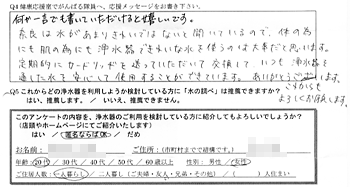 Q4 健康応援室でがんばる隊員へ、応援メッセージをお書き下さい。
何か一言でも書いていただけると嬉しいです。
奈良は水があまりきれいではないと聞いているので、体の為
にも肌の為にも浄水器できれいな水を使うのは大事だと思います。
定期的にカートリッジを送っていただいて交換して、いつも浄水器を
通した水を安心して使用することができています。ありがとうございます。
これからも
よろしくお願いします。
Q5 これからどの浄水器を利用しようか検討している方に「水の調べ」は推薦できますか？
はい、推薦します。 / いいえ、推薦できません。
このアンケートの内容を、浄水器のご利用を検討している方に紹介してもよろしいでしょうか？
(店頭やホームページにてご紹介いたします)
はい / 匿名ならばOK / だめ
お名前： ご住所：(市町村までで結構です。)
年齢：20代 / 30代 / 40代 / 50代 / 60歳以上 性別：男性 / 女性
ご住居人数：一人暮らし 二人暮し (ご夫婦・友人・兄弟・その他) / ( )人住まい